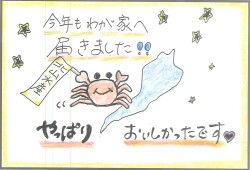 今年もわが家へ
届きました!!
やっぱり おいしかったです